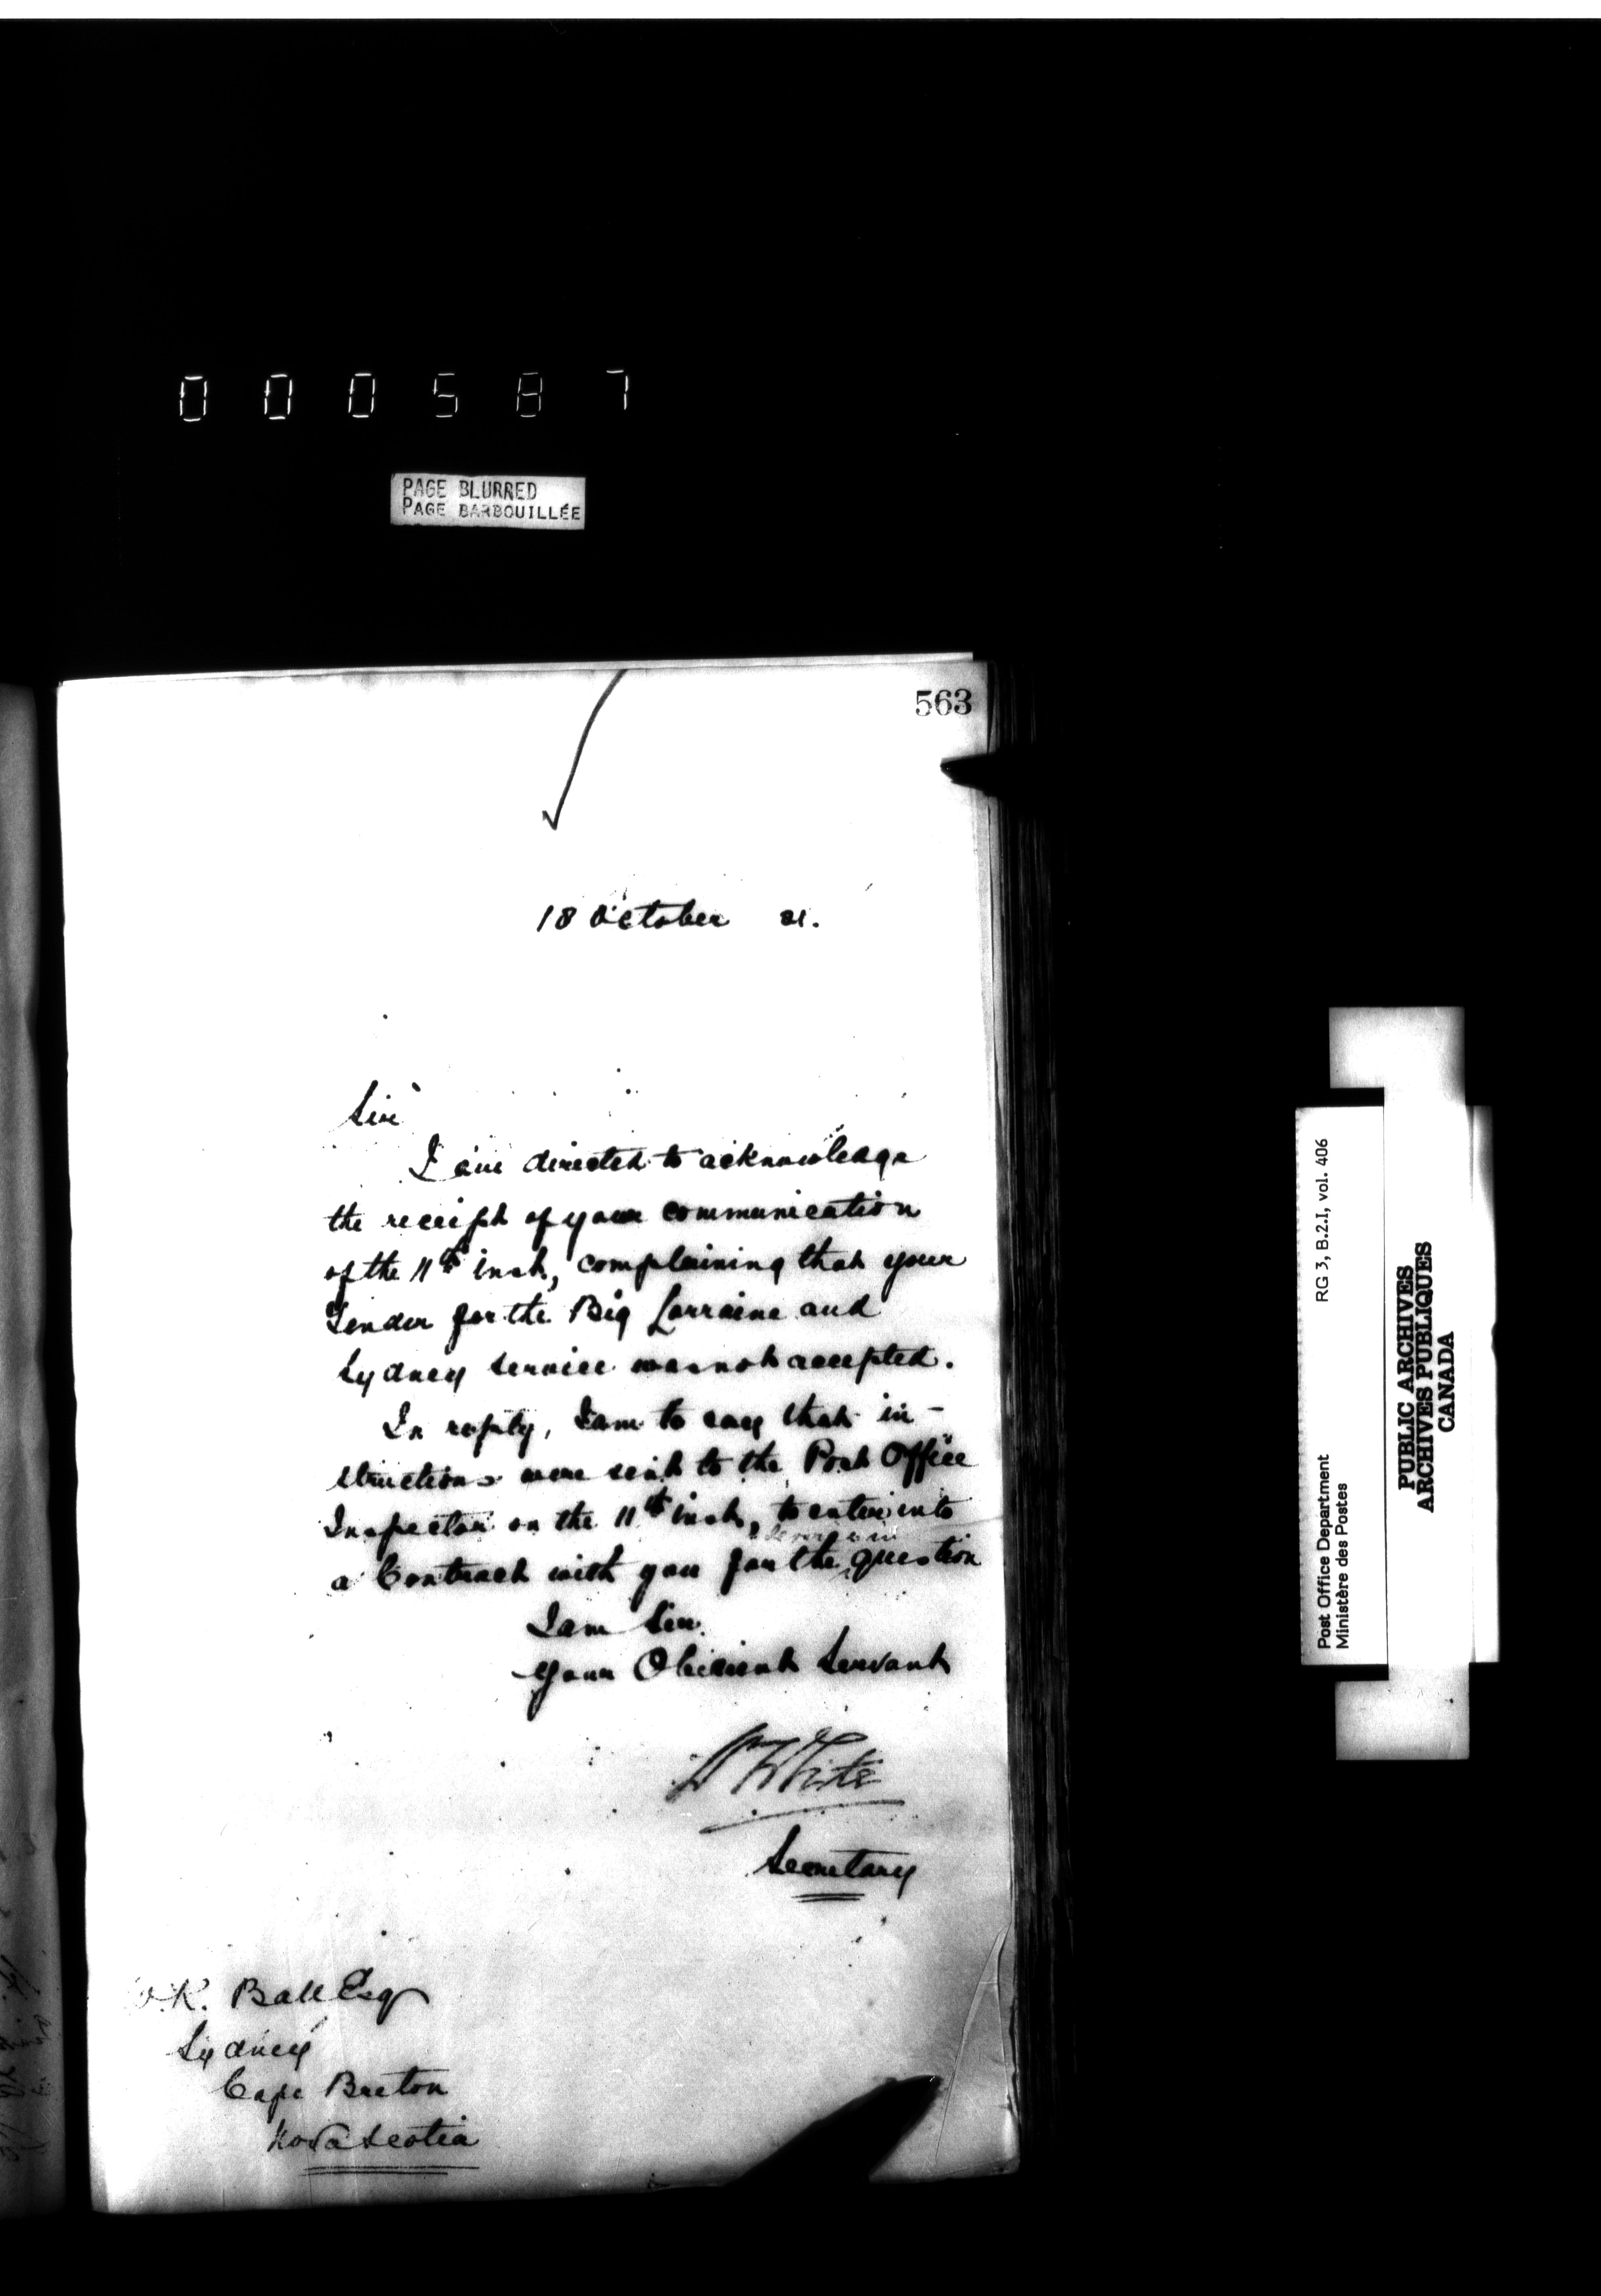 000587
PAGE BLURRED
PAGE BARBOUILLÉE
563
18 October 81.
Sir
I am directed to acknowledge
the receipt of your communication
of the 11th inst, complaining that your
Tender for the Big Lorraine and
Sydney service was not accepted.
In reply, I am to say that in-
structions were sent to the Post Office
Inspector on the 11th inst, to enter into
service in
a Contract with you for the question
I am Sir.
Your Obedient Servant
White
Secretary
K. Ball Esq
Sydney
Cape Breton
Nova Scotia
RG 3, B.2.I, vol. 406
Post Office Department
Ministère des Postes
PUBLIC ARCHIVES
ARCHIVES PUBLIQUES
CANADA